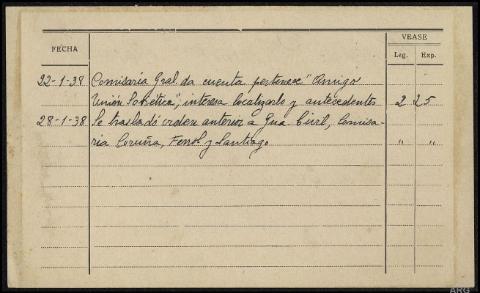 FECHA
VEASE
Leg. Exp.
22-1-38 Comisaría Gral. da cuenta pertenece "Amigo
Unión Soviética", interesa localizarlo y antecedentes 2 25
28-1-38 Se trasladó orden anterior a Gua Civil, Comisa-
ria Coruña, Ferrol y Santiago " "
ARG